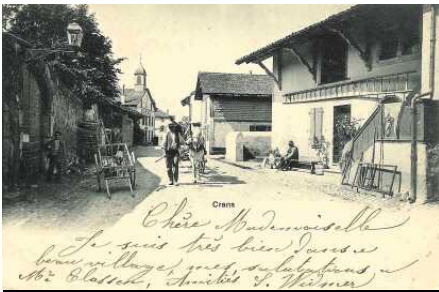 Crans
Chère Mademoiselle
Je suis très bien dans ce
beau village, mes salutations, a
Mr Classen, Amitiés S. Widmer